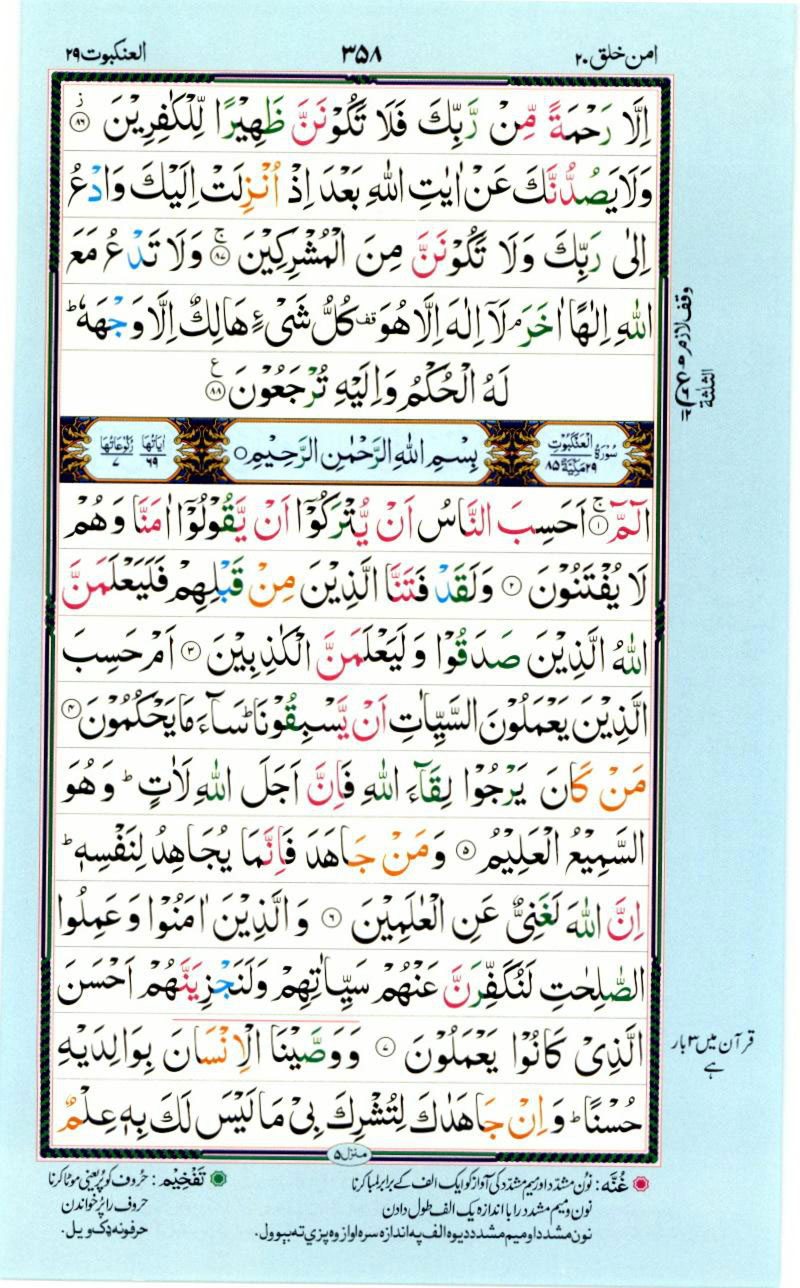 امن خلق ۲۰
۳۵۸
العنکبوت ۲۹
اِلَّا رَحْمَةً مِّنْ رَّبِّكَ فَلَا تَكُوْنَنَّ ظَهِيْرًا لِّلْكٰفِرِيْنَ ۸۶
وَلَا يَصُدُّنَّكَ عَنْ اٰيٰتِ اللّٰهِ بَعْدَ اِذْ اُنْزِلَتْ اِلَيْكَ وَادْعُ
اِلٰى رَبِّكَ وَلَا تَكُوْنَنَّ مِنَ الْمُشْرِكِيْنَ ۸۷ وَلَا تَدْعُ مَعَ
اللّٰهِ اِلٰهًا اٰخَرَ ۘ لَاۤ اِلٰهَ اِلَّا هُوَ قف كُلُّ شَیْءٍ هَالِكٌ اِلَّا وَجْهَهٗ ؕ
لَهُ الْحُكْمُ وَاِلَيْهِ تُرْجَعُوْنَ ۸۸
وقف لازم
الثلٰثة
سُوْرَةُ الْعَنْكَبُوْتِ
۲۹ مَكِّيَّةٌ ۸۵
بِسْمِ اللّٰهِ الرَّحْمٰنِ الرَّحِيْمِ
اٰيَاتُهَا ۶۹
رُكُوْعَاتُهَا ۷
الٓمّٓ ۱ اَحَسِبَ النَّاسُ اَنْ يُّتْرَكُوْۤا اَنْ يَّقُوْلُوْۤا اٰمَنَّا وَهُمْ
لَا يُفْتَنُوْنَ ۲ وَلَقَدْ فَتَنَّا الَّذِيْنَ مِنْ قَبْلِهِمْ فَلَيَعْلَمَنَّ
اللّٰهُ الَّذِيْنَ صَدَقُوْا وَلَيَعْلَمَنَّ الْكٰذِبِيْنَ ۳ اَمْ حَسِبَ
الَّذِيْنَ يَعْمَلُوْنَ السَّيِّاٰتِ اَنْ يَّسْبِقُوْنَا ؕ سَآءَ مَا يَحْكُمُوْنَ ۴
مَنْ كَانَ يَرْجُوْا لِقَآءَ اللّٰهِ فَاِنَّ اَجَلَ اللّٰهِ لَاٰتٍ ؕ وَهُوَ
السَّمِيْعُ الْعَلِيْمُ ۵ وَمَنْ جَاهَدَ فَاِنَّمَا يُجَاهِدُ لِنَفْسِهٖ ؕ
اِنَّ اللّٰهَ لَغَنِيٌّ عَنِ الْعٰلَمِيْنَ ۶ وَالَّذِيْنَ اٰمَنُوْا وَعَمِلُوا
الصّٰلِحٰتِ لَنُكَفِّرَنَّ عَنْهُمْ سَيِّاٰتِهِمْ وَلَنَجْزِيَنَّهُمْ اَحْسَنَ
الَّذِيْ كَانُوْا يَعْمَلُوْنَ ۷ وَوَصَّيْنَا الْاِنْسَانَ بِوَالِدَيْهِ
حُسْنًا ؕ وَاِنْ جَاهَدٰكَ لِتُشْرِكَ بِيْ مَا لَيْسَ لَكَ بِهٖ عِلْمٌ
قرآن میں ۳ بار
ہے
منزل ۵
غُنَّه: نون مشدّد اور میم مشدّد کی آواز کو ایک الف کے برابر لمبا کرنا
نون و میم مشدد را با اندازه یک الف طول دادن
نون مشدد او میم مشدد دیوه الف په اندازه سره اواز وه پزې ته بېوول.
تَفْخِيْم: حروف کو پُر یعنی موٹا کرنا
حروف را پُر خواندن
حرفونه ډک ویل.